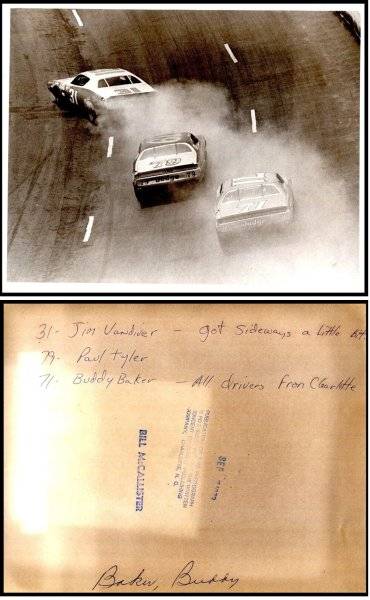 31
79
Dodge 79
71
Dodge
31- Jim Vandiver - got sideways a little bit
79- Paul Tyler
71- Buddy Baker - All drivers from Charlotte
BILL McCALLISTER
PHOTOGRAPH
N. C.
SEP
Baker, Buddy